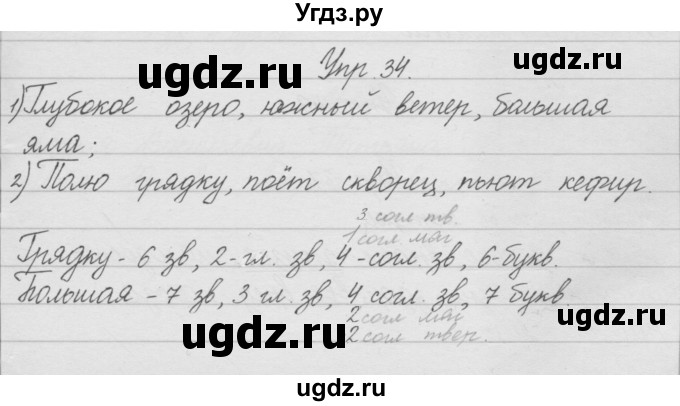 Угдз.ру
Упр. 34.
ugdz.ru ugdz.ru
1) Глубокое озеро, южный ветер, большая
яма;
2) Полю грядку, поёт скворец, пьют кефир.
ugdz.ru ugdz.ru
3 согл тв.
1 согл. мяг
Грядку - 6 зв, 2 - гл. зв, 4 - согл. зв, 6 - букв.
Большая - 7 зв, 3 гл. зв, 4 согл. зв, 7 букв
2 согл мяг
2 согл твер.
ugdz.ru ugdz.ru
ugdz.ru